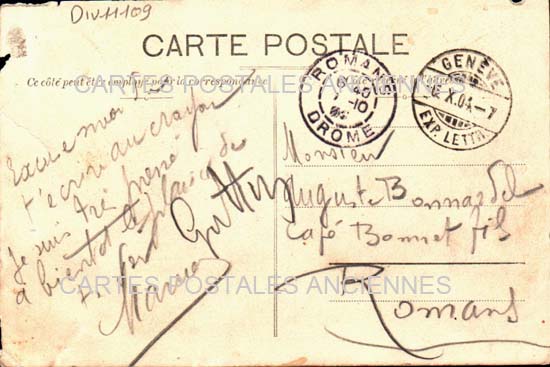 Div11109
CARTE POSTALE
Ce côté peut être employé pour la correspondance
CARTES POSTALES ANCIENNES
ROMANS
10
DRÔME
GENÈVE
X.04-7
EXP. LETTR.
Excuse moi
t'écrire au crayon
Je suis très pressé
à bientôt le plaisir de
Monsieur
Auguste Bonnardel
Café Bonnet fils
Romans
CARTES POSTALES ANCIENNES